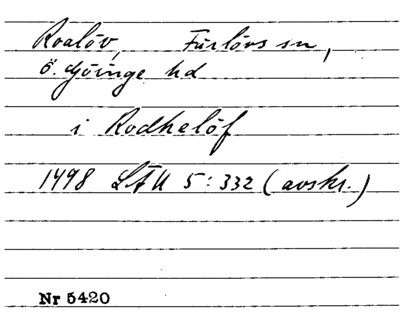 Roalöv, Färlövs sn,
ö. Göinge hd
i Rodhelöf
1498 LÄU 5:332 (avskr.)
Nr 5420